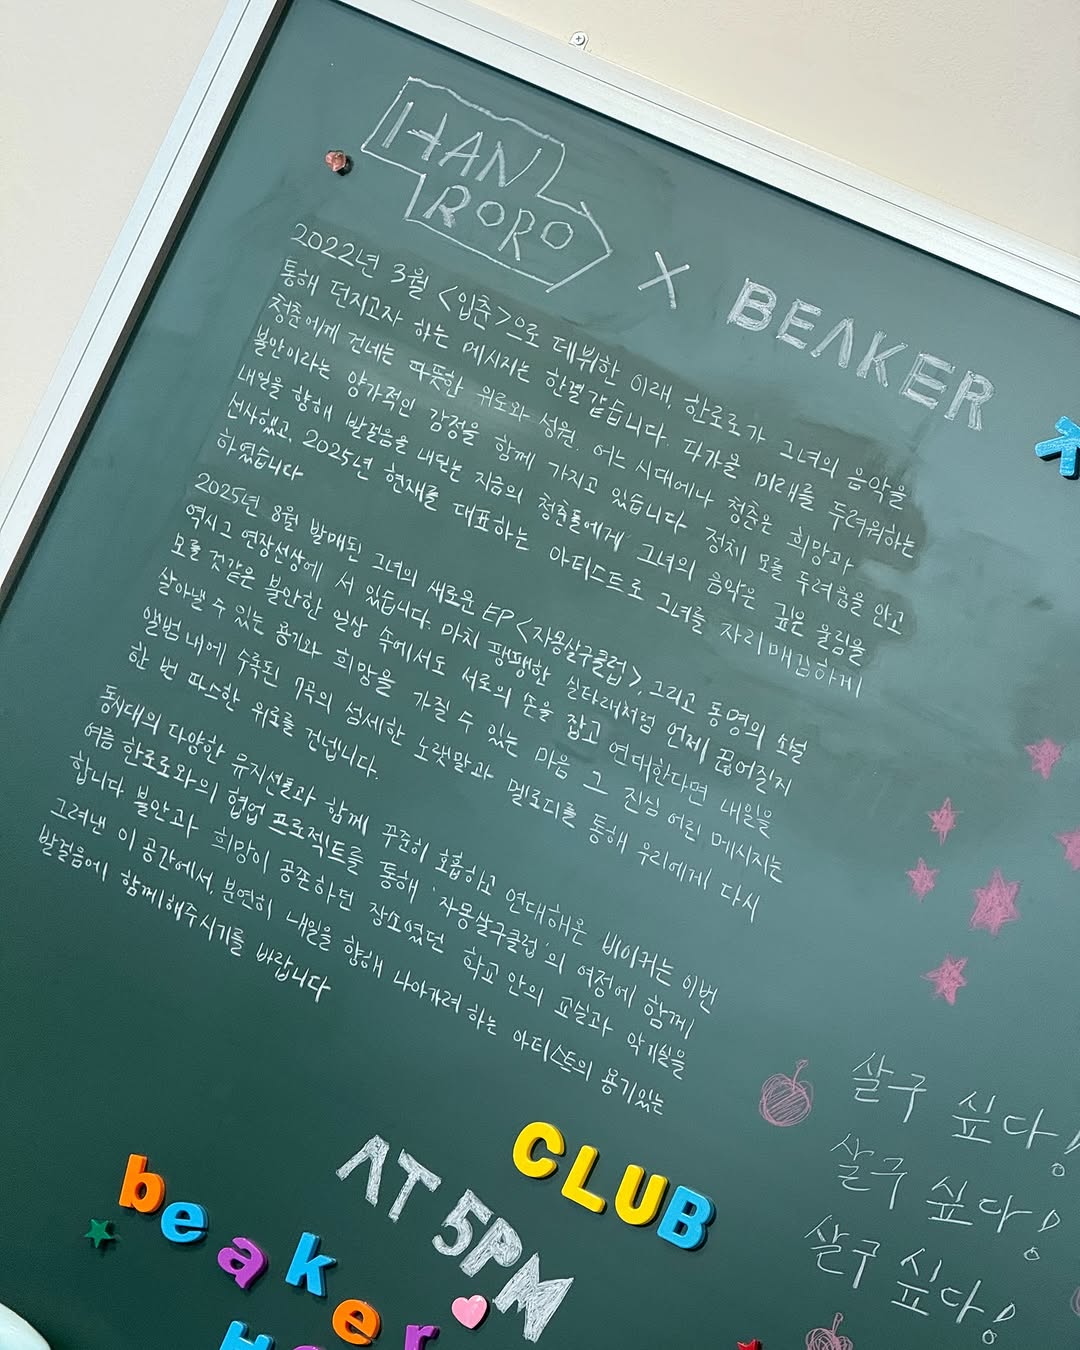 HAN
RORO
X BEAKER
2022년 3월 <입춘>으로 데뷔한 이래, 한로로가 그녀의 음악을
통해 던지고자 하는 메시지는 한결같습니다. 다가올 미래를 두려워하는
청춘에게 건네는 따뜻한 위로와 성원. 어느 시대에나 청춘은 희망과
불안이라는 양가적인 감정을 함께 가지고 있습니다 정체 모를 두려움을 안고
내일을 향해 발걸음을 내딛는 지금의 청춘들에게 그녀의 음악은 깊은 울림을
선사했고, 2025년 현재를 대표하는 아티스트로 그녀를 자리매김하게
하였습니다
2025년 8월 발매된 그녀의 새로운 EP <자몽살구클럽>, 그리고 동명의 소설
역시 그 연장선상에 서 있습니다. 마치 팽팽한 실타래처럼 언제 끊어질지
모를 것같은 불안한 일상 속에서도 서로의 손을 잡고 연대한다면 내일을
살아낼 수 있는 용기와 희망을 가질 수 있는 마음 그 진심 어린 메시지는
앨범 내에 수록된 7곡의 섬세한 노랫말과 멜로디를 통해 우리에게 다시
한 번 따스한 위로를 건넵니다.
동시대의 다양한 뮤지션들과 함께 꾸준히 호흡하고 연대해온 비이커는 이번
여름 한로로와의 협업 프로젝트를 통해 '자몽살구클럽'의 여정에 함께
합니다 불안과 희망이 공존하던 장소였던 학교 안의 교실과 악기실을
그려낸 이 공간에서, 분연히 내일을 향해 나아가려 하는 아티스트의 용기있는
발걸음에 함께해주시기를 바랍니다
살구 싶다!
살구 싶다!
살구 싶다!
CLUB
AT 5PM
beaker